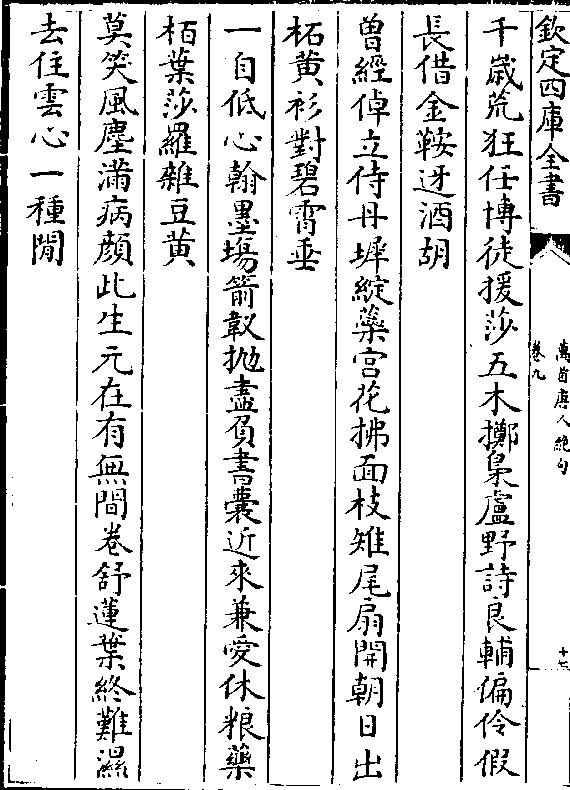 欽定四庫全書
萬首唐人絶句
卷九
千歳荒狂任博徒援莎五木擲梟盧野詩良輔偏伶假
長借金鞍迓酒胡
曽經倬立侍丹墀綻蘂宫花拂面枝雉尾扇開朝日出
柘黄衫對碧霄垂
一自低心翰墨塲箭靫抛盡負書囊近來兼愛休粮藥
栢葉莎羅雜豆黄
莫笑風塵滿病顔此生元在有無間卷舒蓮葉終難濕
去住雲心一種閒